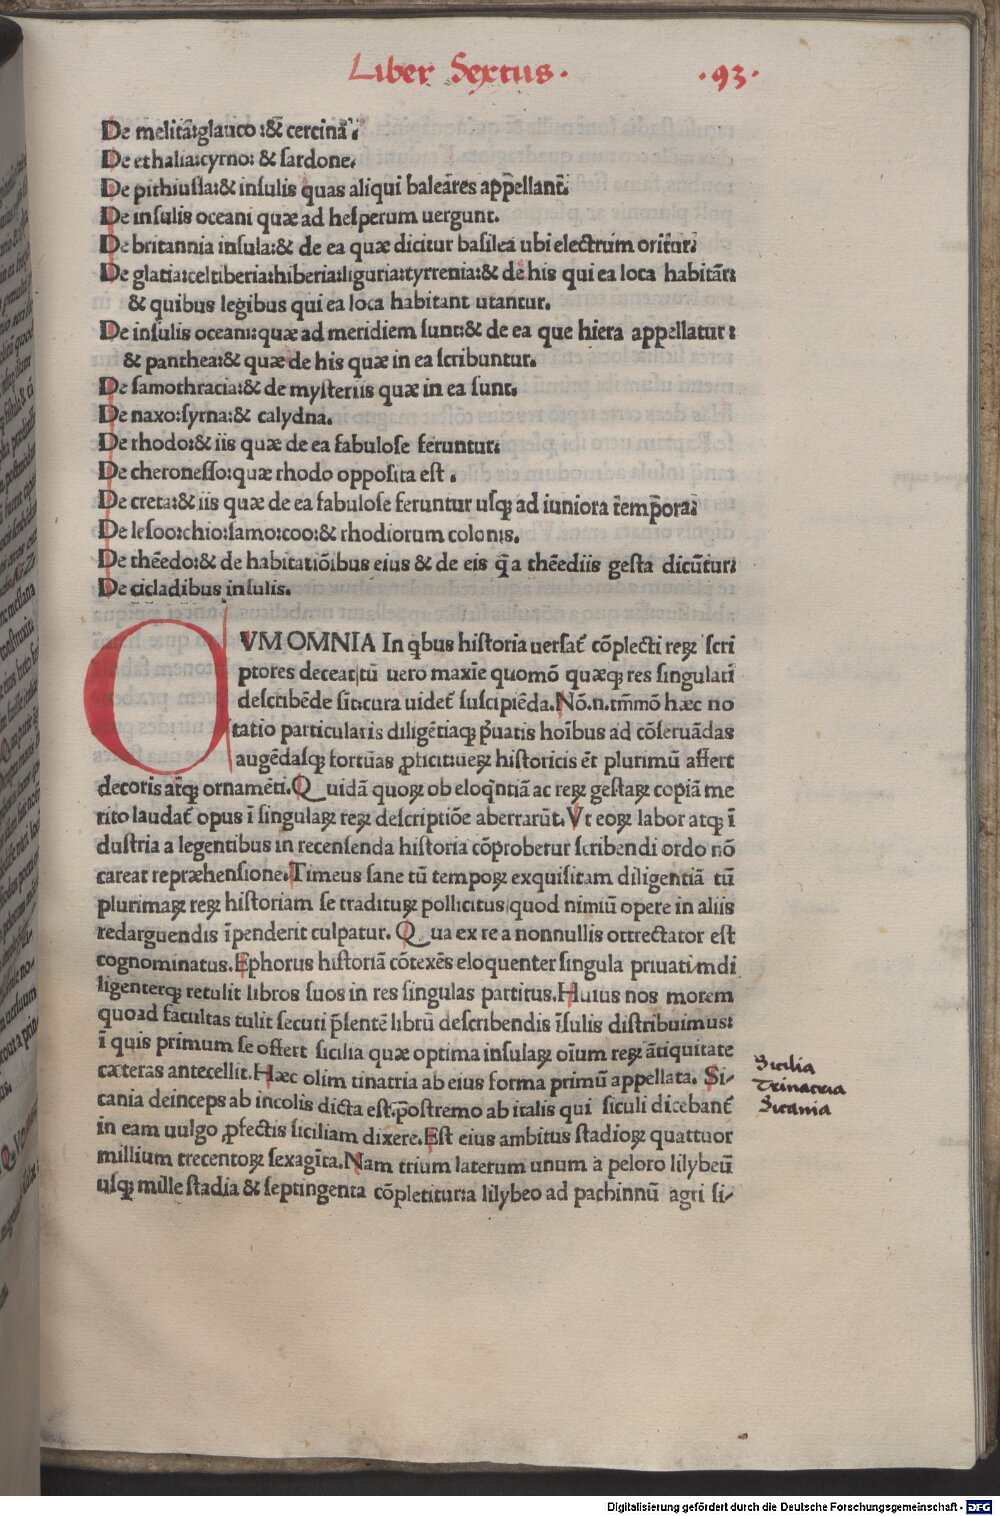 Liber Sextus.
.93.
De melita:glauco :& cercina.
De ethalia:cyrno: & sardone.
De pithiussa:& insulis quas aliqui baleares appellant.
De insulis oceani quæ ad hesperum uergunt.
De britannia insula:& de ea quæ dicitur basilea ubi electrum oritur:
De glatia:celtiberia:hiberia:liguria:tyrrenia:& de his qui ea loca habitāt:
& quibus legibus qui ea loca habitant utantur.
De insulis oceani:quæ ad meridiem sunt:& de ea que hiera appellatur :
& panthea:& quæ de his quæ in ea scribuntur.
De samothracia:& de mysteriis quæ in ea sunt.
De naxo:syrna:& calydna.
De rhodo:& iis quæ de ea fabulose feruntur:
De cheronesso:quæ rhodo opposita est .
De creta:& iis quæ de ea fabulose feruntur usqꝫ ad iuniora tēmpora:
De lesoo:chio:samo:coo:& rhodiorum colonis.
De thēedo:& de habitatiōibus eius & de eis q̄ a thēediis gesta dicūtur:
De cicladibus insulis.
OVM OMNIA In qbus historia uersat̄ cōplecti reꝝ scri
ptores deceat:tū uero maxīe quomō quæqꝫ res singulati
describēde sīt:cura uidet̄ suscipiēda.Nō.n.tm̄mō hæc no
tatio particularis diligētiaqꝫ p̄uatis hoībus ad cōseruādas
augēdasqꝫ fortūas ꝓficit:ueꝝ historicis ēt plurimū affert
decoris atqꝫ ornamēti.Quidā quoꝝ ob eloqn̄tiā ac reꝝ gestaꝝ copiā me
rito laudat̄ opus ī singulaꝝ reꝝ descriptiōe aberrarūt.Vt eoꝝ labor atqꝫ ī
dustria a legentibus in recensenda historia cōprobetur scribendi ordo nō
careat repræhensione.Timeus sane tū tempoꝝ exquisitam diligentiā tū
plurimaꝝ reꝝ historiam se traditurꝝ pollicitus quod nimiū opere in aliis
redarguendis īpenderit culpatur. Qua ex re a nonnullis ottrectator est
cognominatus.Ephorus historiā cōtexēs eloquenter singula priuatimdi
ligenterqꝫ retulit libros suos in res singulas partitus.Huius nos morem
quoad facultas tulit secuti p̄sentē librū describendis īsulis distribuimus:
ī quis primum se offert sicilia quæ optima insulaꝝ oīum reꝝ ātiquitate
cæteras antecellit.Hæc olim tinatria ab eius forma primū appellata. Si-
cania deinceps ab incolis dicta est:postremo ab italis qui siculi dicebant̄
in eam uulgo ꝓfectis siciliam dixere.Est eius ambitus stadioꝝ quattuor
millium trecentoꝝ sexagīta.Nam trium laterum unum a peloro lilybeū
usqꝫ mille stadia & septingenta cōpletitur:a lilybeo ad pachinnū agti si-
Sicilia
Trinacria
Sicania
Digitalisierung gefördert durch die Deutsche Forschungsgemeinschaft - DFG